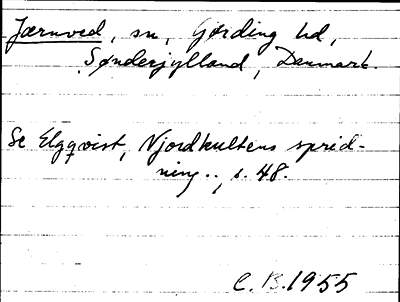 Jærnved, sn, Gørding hd,
Sønderjylland, Danmark.
Se Elgqvist, Njordkultens sprid-
ning.., s. 48.
C. B. 1955